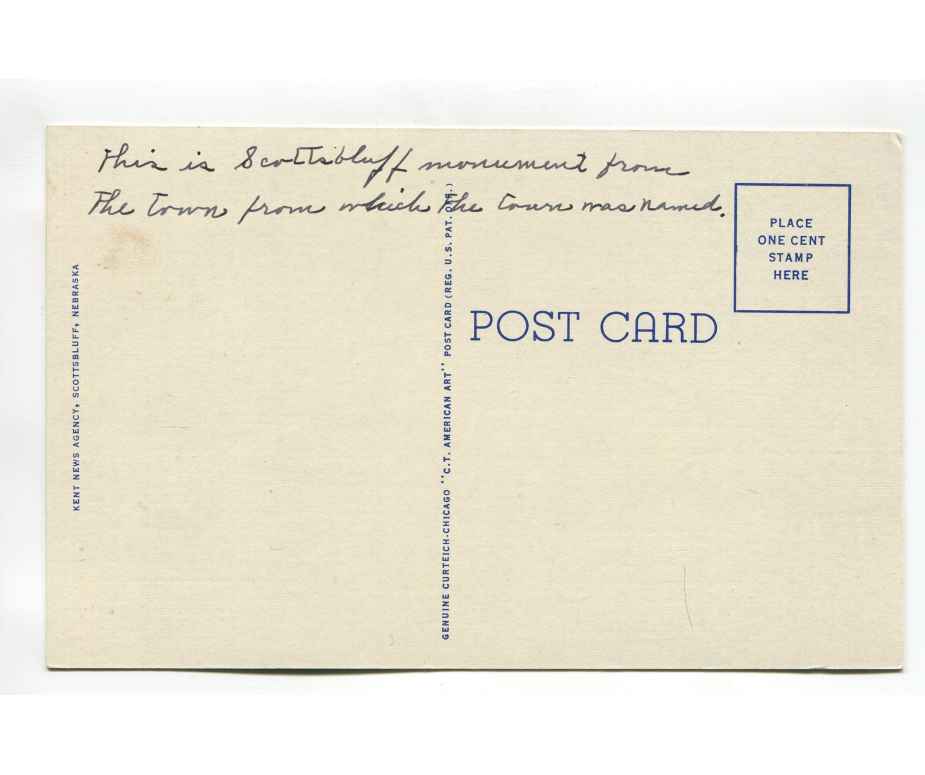 This is Scottsbluff monument from
the town from which the town was named.
PLACE
ONE CENT
STAMP
HERE
POST CARD
KENT NEWS AGENCY, SCOTTSBLUFF, NEBRASKA
GENUINE CURTEICH-CHICAGO "C.T. AMERICAN ART" POST CARD (REG. U.S. PAT. OFF.)